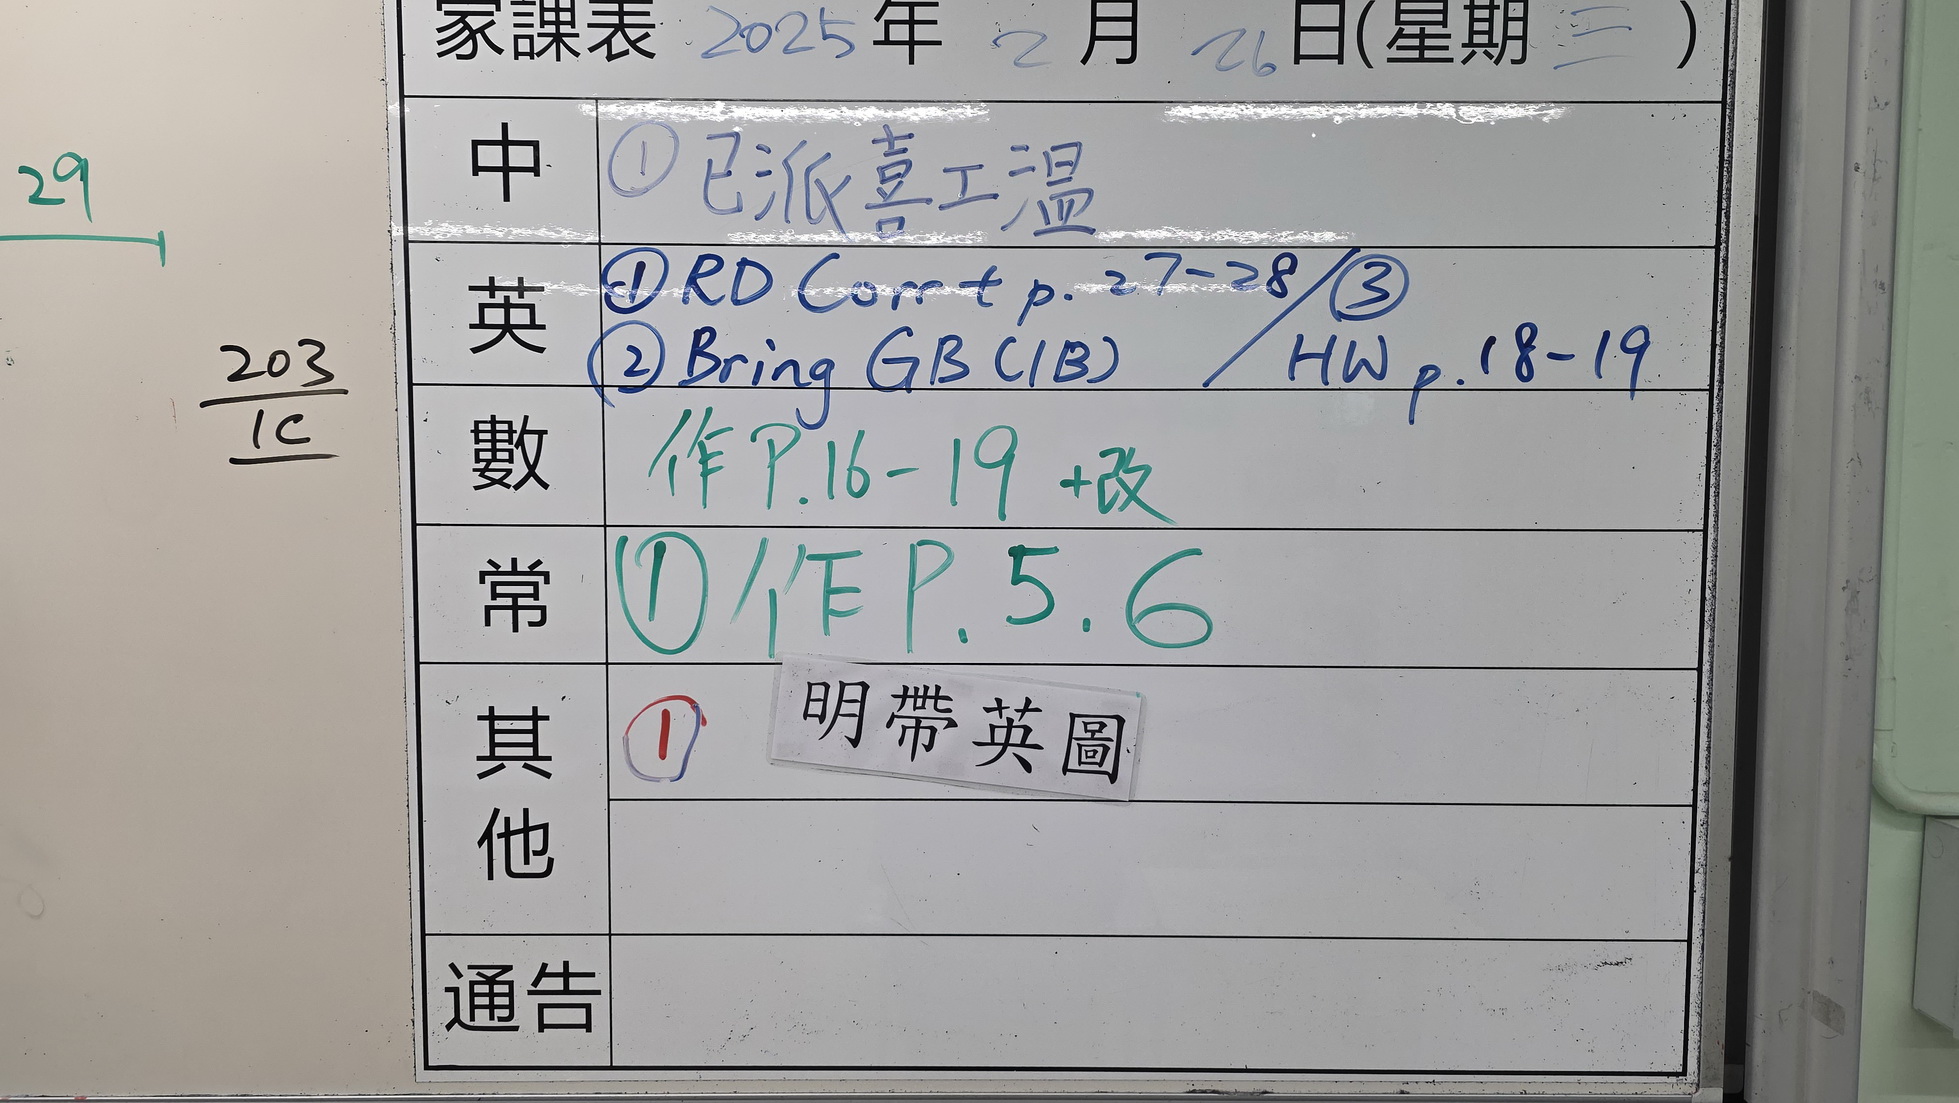 家課表 2025 年 2 月 26 日(星期 三 )
29
中 ① 已派喜工温
英 ① RD Corr't p. 27-28 / ③
② Bring GB (1B) / HW p. 18-19
203
1C
數 作 P.16-19 +改
常 ① 作 P. 5. 6
其他 ① 明帶英圖
通告